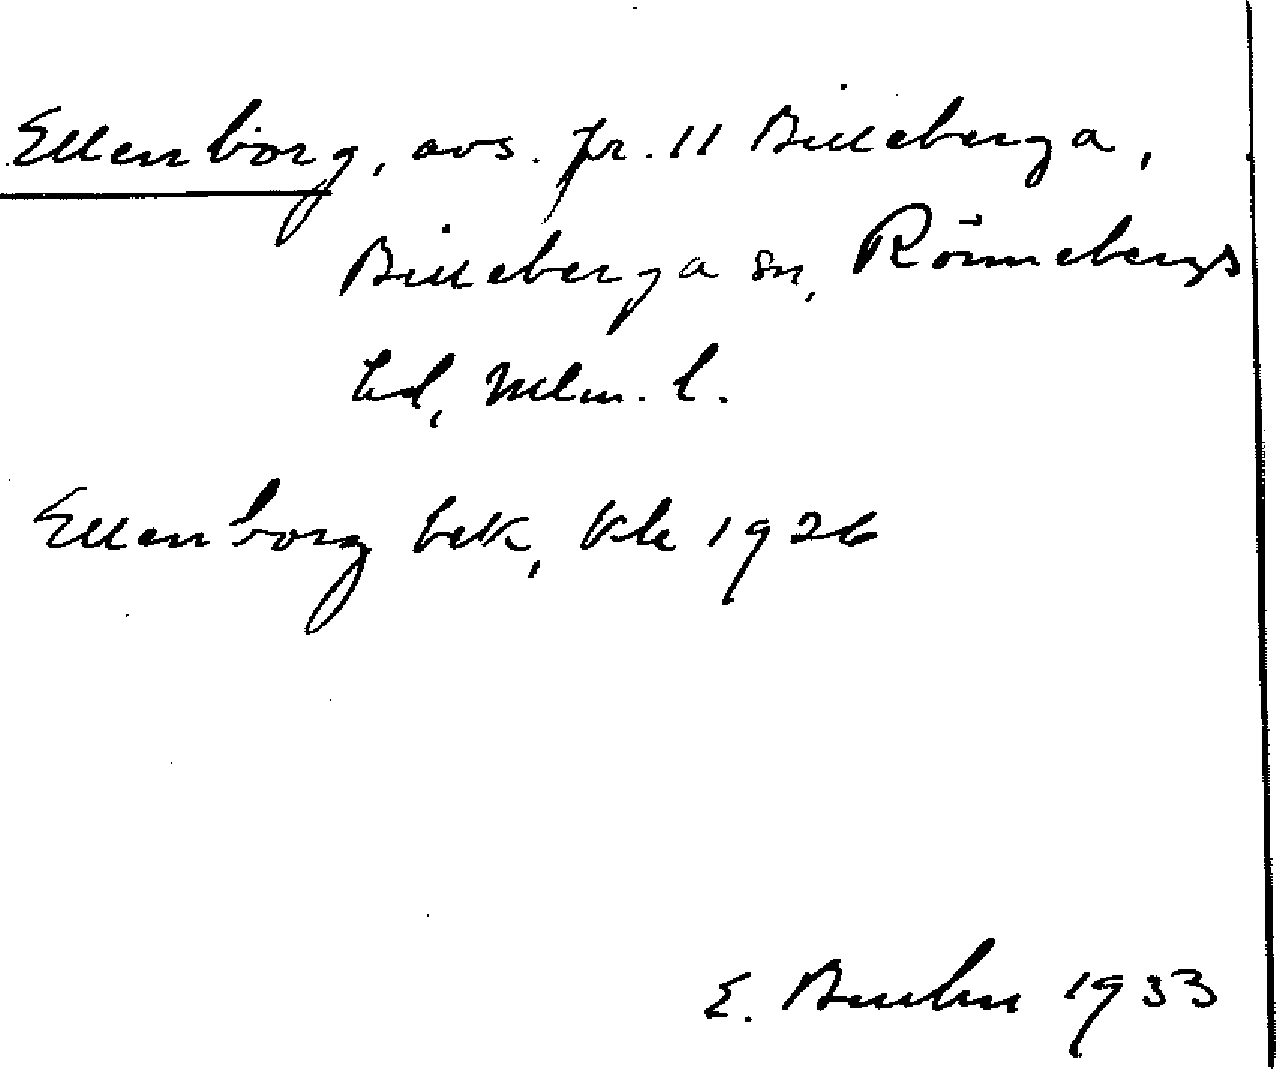 Ellenborg, avs. fr. 11 Billeberga,
Billeberga sn, Rönnebergs
hd, Mlm. l.
Ellenborg bek, Kle 1926
E. 1933